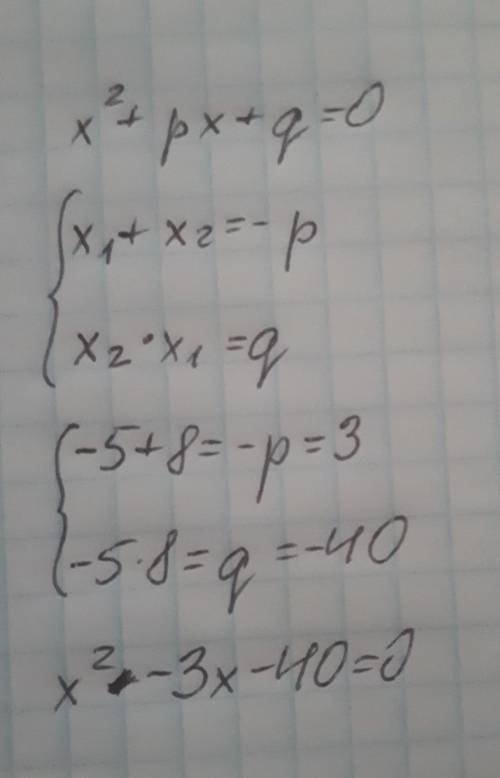 x² + px + q = 0
x₁ + x₂ = -p
x₂ · x₁ = q
-5 + 8 = -p = 3
-5 · 8 = q = -40
x² - 3x - 40 = 0